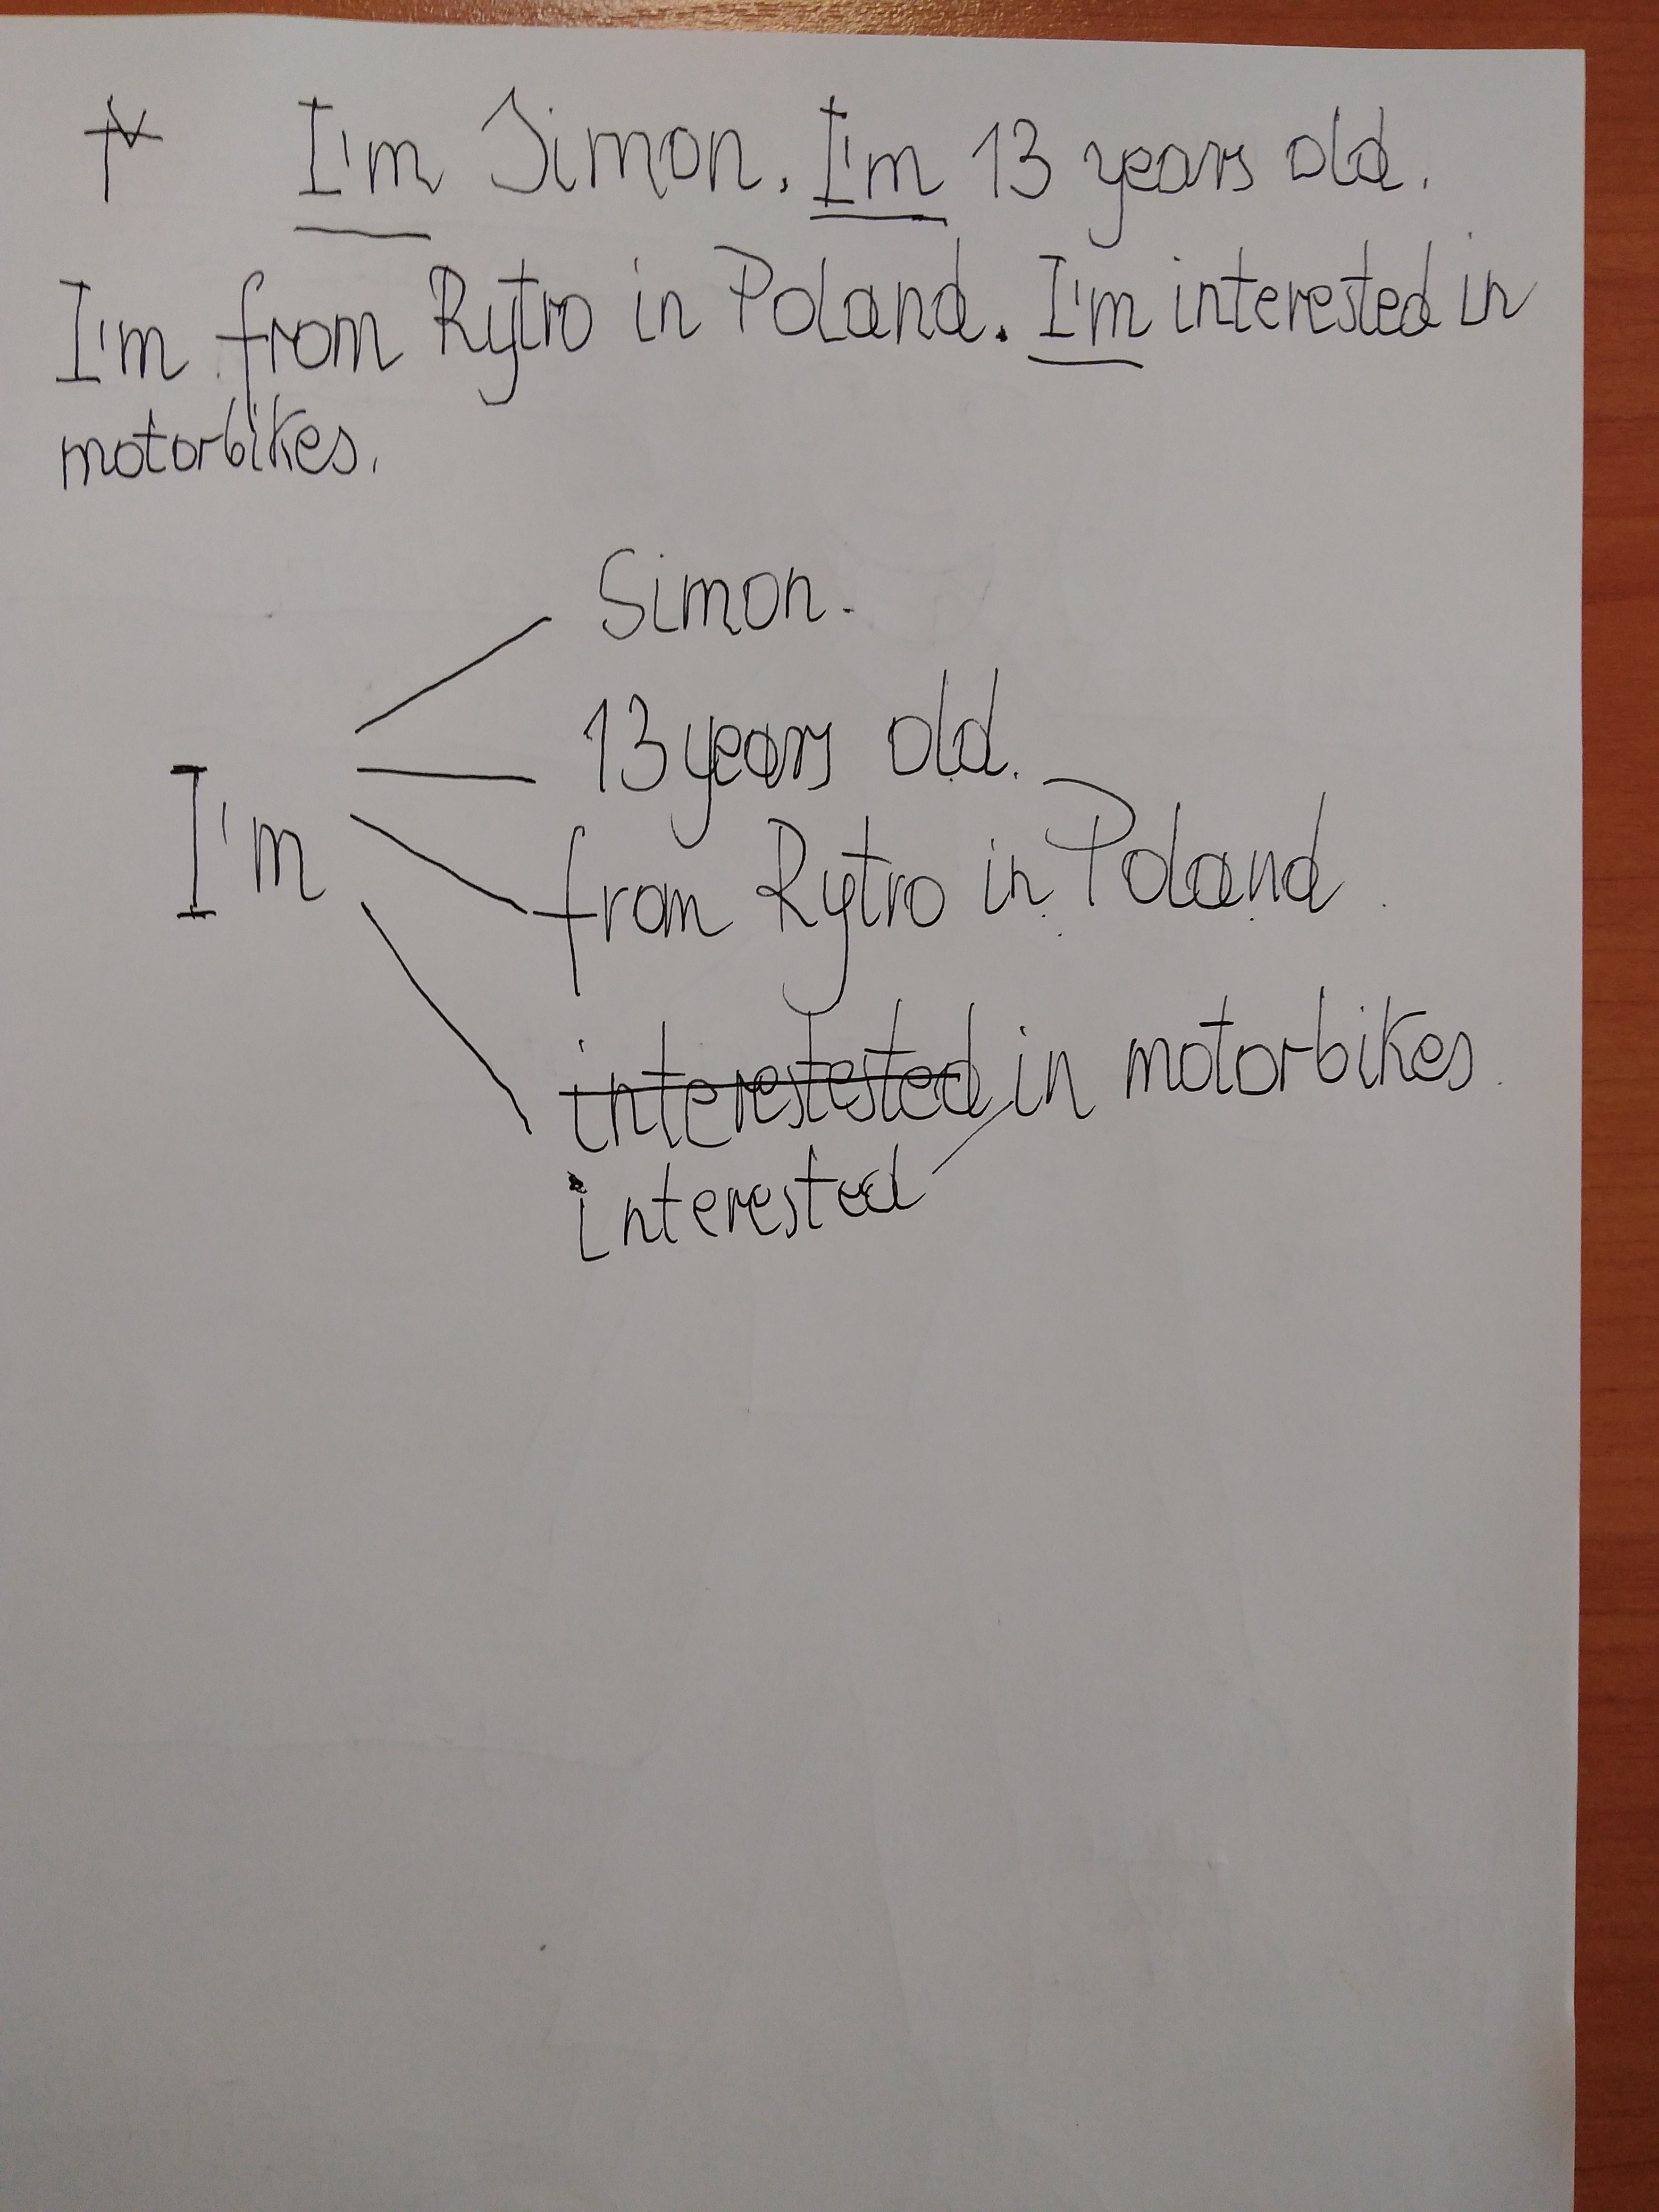 * I'm Simon. I'm 13 years old.
I'm from Rytro in Poland. I'm interested in
motorbikes.
Simon.
13 years old.
I'm
from Rytro in Poland.
interestested in motorbikes.
interested